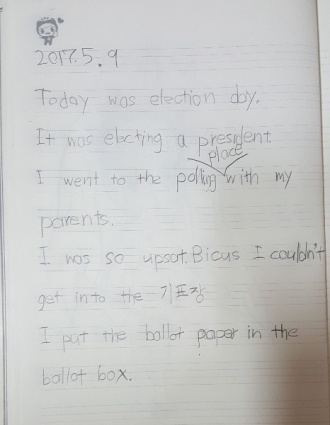 2017.5.9
Today was election day.
It was electing a president.
place
I went to the polling with my
parents.
I was so upsat. Bicus I couldn't
get into the 기표장
I put the ballot paper in the
ballot box.